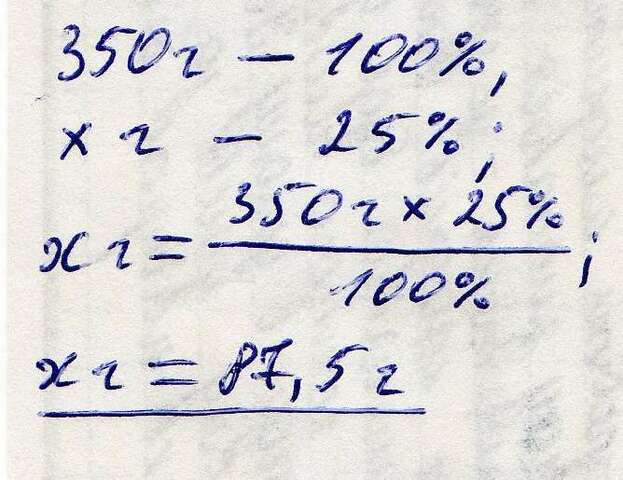 350г – 100%,
х г – 25%;
хг = 350г х 25% / 100% ;
хг = 87,5г